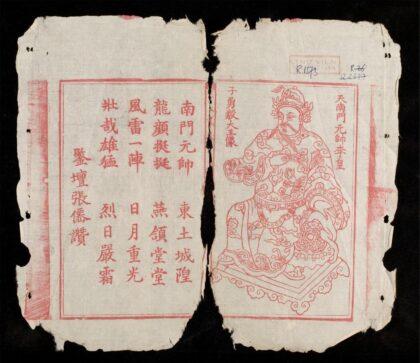 天南門元帥李皇
子勇毅大王像
南門元帥 東土城隍
龍顏擬挺 燕頷堂堂
風雷一陣 日月重光
壯哉雄猛 烈日嚴霜
鑒壇張僑讚